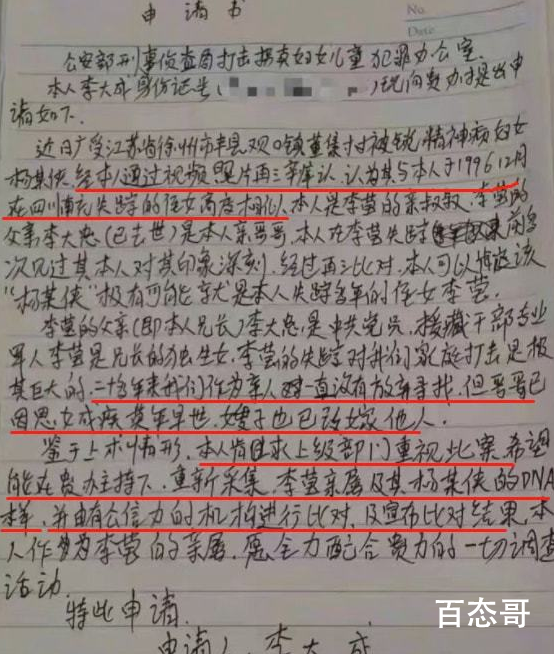 申请书
No.
Date
公安部刑事侦查局打击拐卖妇女儿童犯罪办公室.
本人李大成身份证号( )现向贵办提出申
请如下.
近日广受江苏省徐州市丰县欢口镇董集村被锁精神病妇女
杨某侠,经本人通过视频,照片再三辨认,认为其与本人于1996 12月
在四川南充失踪的侄女高度相似,本人是李莹的亲叔叔,李莹的
父亲李大忠(已去世)是本人亲哥哥,本人在李莹失踪前多
次见过其本人对其印象深刻,经过再三比对,本人可以推返该
"杨某侠"极有可能就是本人失踪多年的侄女李莹.
李莹的父亲(即本人兄长)李大忠,是中共党员,援藏干部专业
军人李莹是兄长的独生女,李莹的失踪对我们家庭打击是极
其巨大的,二十多年来我们作为亲人一直没有放弃寻找,但哥哥已
因思女成疾英年早世,嫂子也已改嫁他人.
鉴于上术情形,本人肯且求上级部门重视此案希望
能在贵办主持下,重新采集,李莹亲属及其杨某侠的DNA
样,并由有公信力的机构进行比对,及宣布比对结果,本
人作为李莹的亲属,愿全力配合贵力的一切调查
活动.
特此申请.
申请人 李大成
百态哥